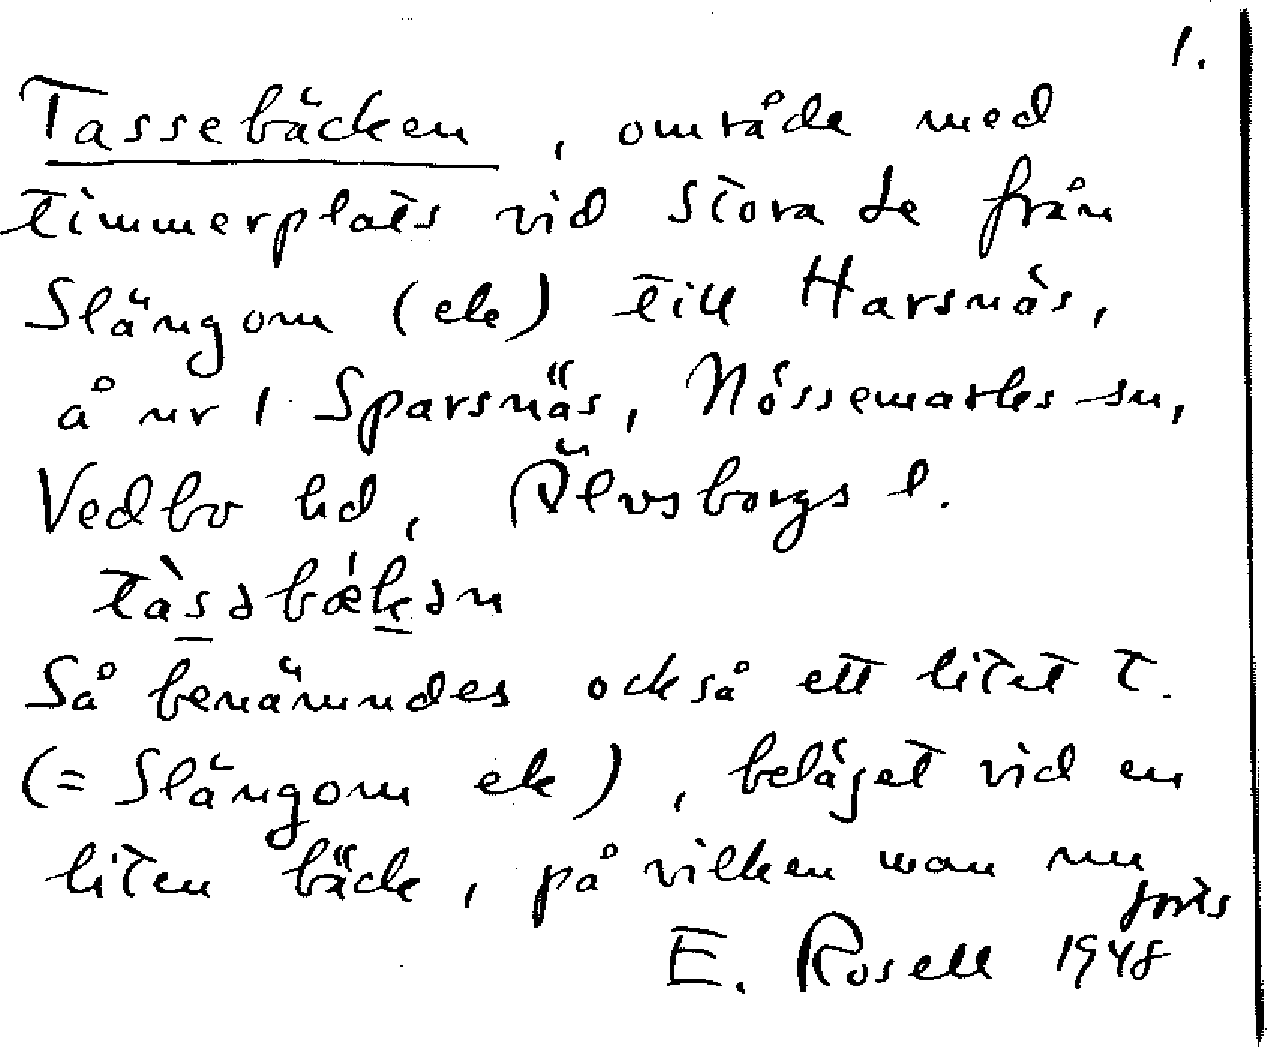 1.
Tassebäcken, område med
timmerplats vid Stora Le från
Slängom (ek) till Harsnäs,
å nr 1 Sparsnäs, Nössemarks sn,
Vedbo hd, Älvsborgs l.
tàsəbǽkən
Så benämndes också ett litet t.
(= Slängom ek), beläget vid en
liten bäck, på vilken man nu
forts
E. Rosell 1948